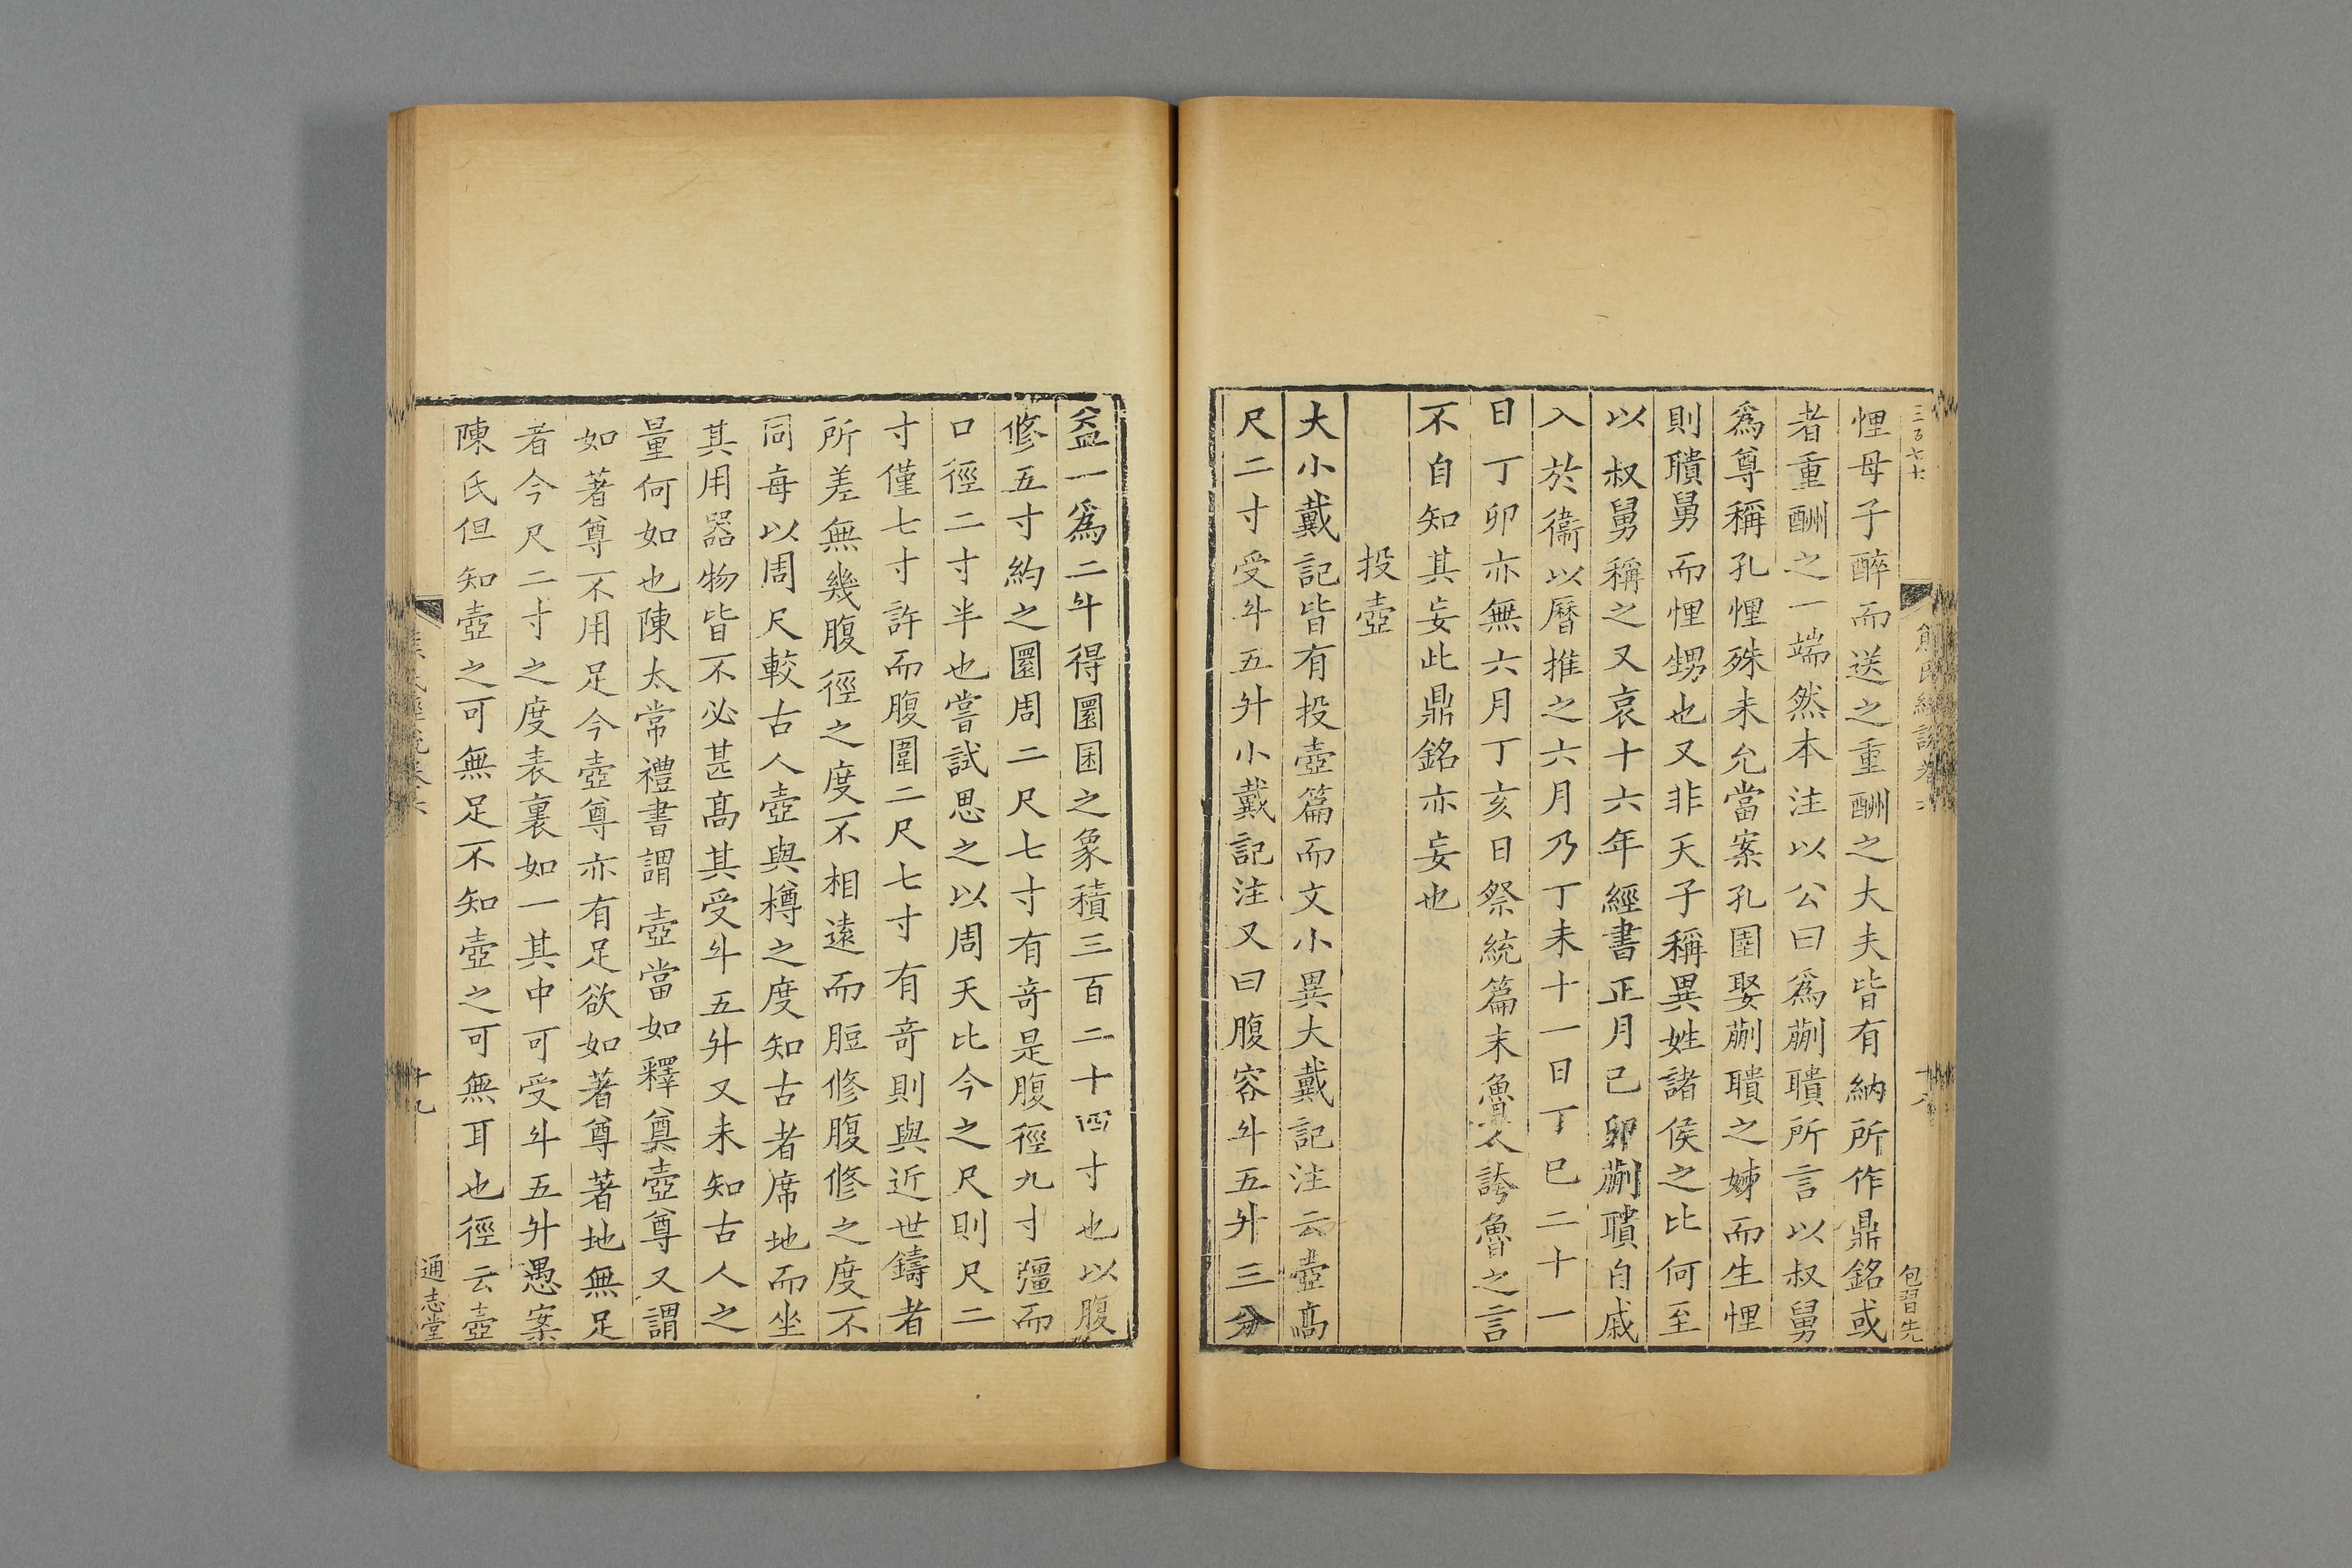 三百七十
悝母子醉而送之重酬之大夫皆有納所作鼎銘或
者重酬之一端然本注以公曰爲蒯聵所言以叔舅
爲尊稱孔悝殊未允當案孔圉娶蒯聵之姊而生悝
則聵舅而悝甥也又非天子稱異姓諸侯之比何至
以叔舅稱之又哀十六年經書正月己卯蒯聵自戚
入於衞以曆推之六月乃丁未十一日丁巳二十一
日丁卯亦無六月丁亥日祭統篇末魯人誇魯之言
不自知其妄此鼎銘亦妄也
投壺
大小戴記皆有投壺篇而文小異大戴記注云壺髙
尺二寸受斗五升小戴記注又曰腹容斗五升三分
包習先
益一爲二斗得圜囷之象積三百二十四寸也以腹
修五寸約之圜周二尺七寸有竒是腹徑九寸彊而
口徑二寸半也嘗試思之以周天比今之尺則尺二
寸僅七寸許而腹圍二尺七寸有竒則與近世鑄者
所差無幾腹徑之度不相遠而脰修腹修之度不
同每以周尺較古人壺與樽之度知古者席地而坐
其用器物皆不必甚髙其受斗五升又未知古人之
量何如也陳太常禮書謂壺當如釋奠壺尊又謂
如著尊不用足今壺尊亦有足欲如著尊著地無足
者今尺二寸之度表裏如一其中可受斗五升愚案
陳氏但知壺之可無足不知壺之可無耳也徑云壺
十九
通志堂